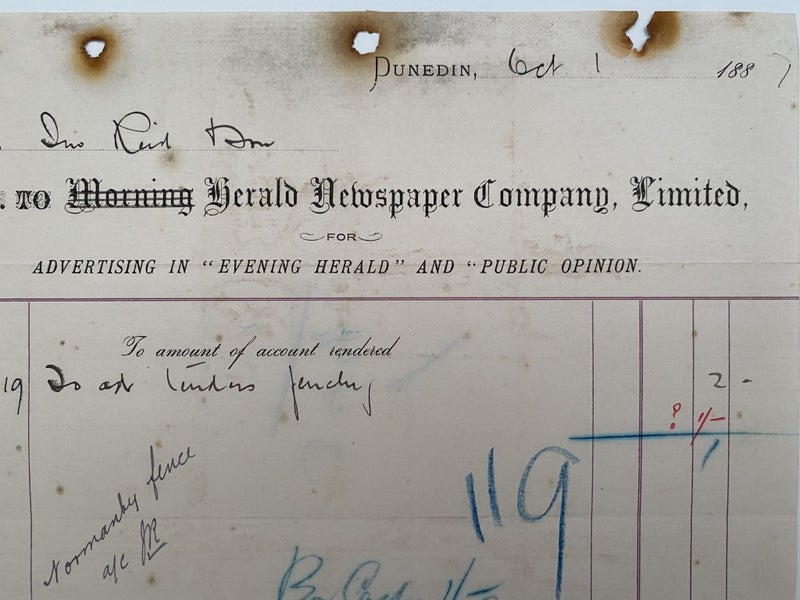 DUNEDIN, Oct 1 1887
Jno Reid & Son
. TO Morning Herald Newspaper Company, Limited,
FOR
ADVERTISING IN "EVENING HERALD" AND "PUBLIC OPINION.
To amount of account rendered
19 To adv Tenders fencing 2 -
? 1/-
1
119
Normanby fence
a/c JR
By Cash 1/-